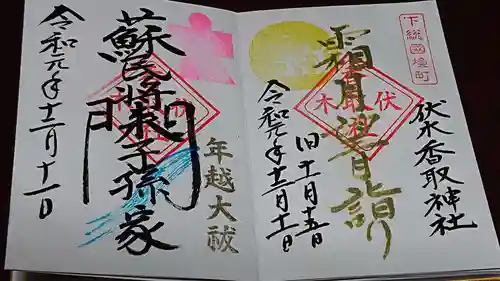 下総國境町
伏木香取神社
霜月
詣
旧十一月十五日
令和元年十二月十一日
年越大祓
蘇民将来子孫家
門
令和元年十二月十一日